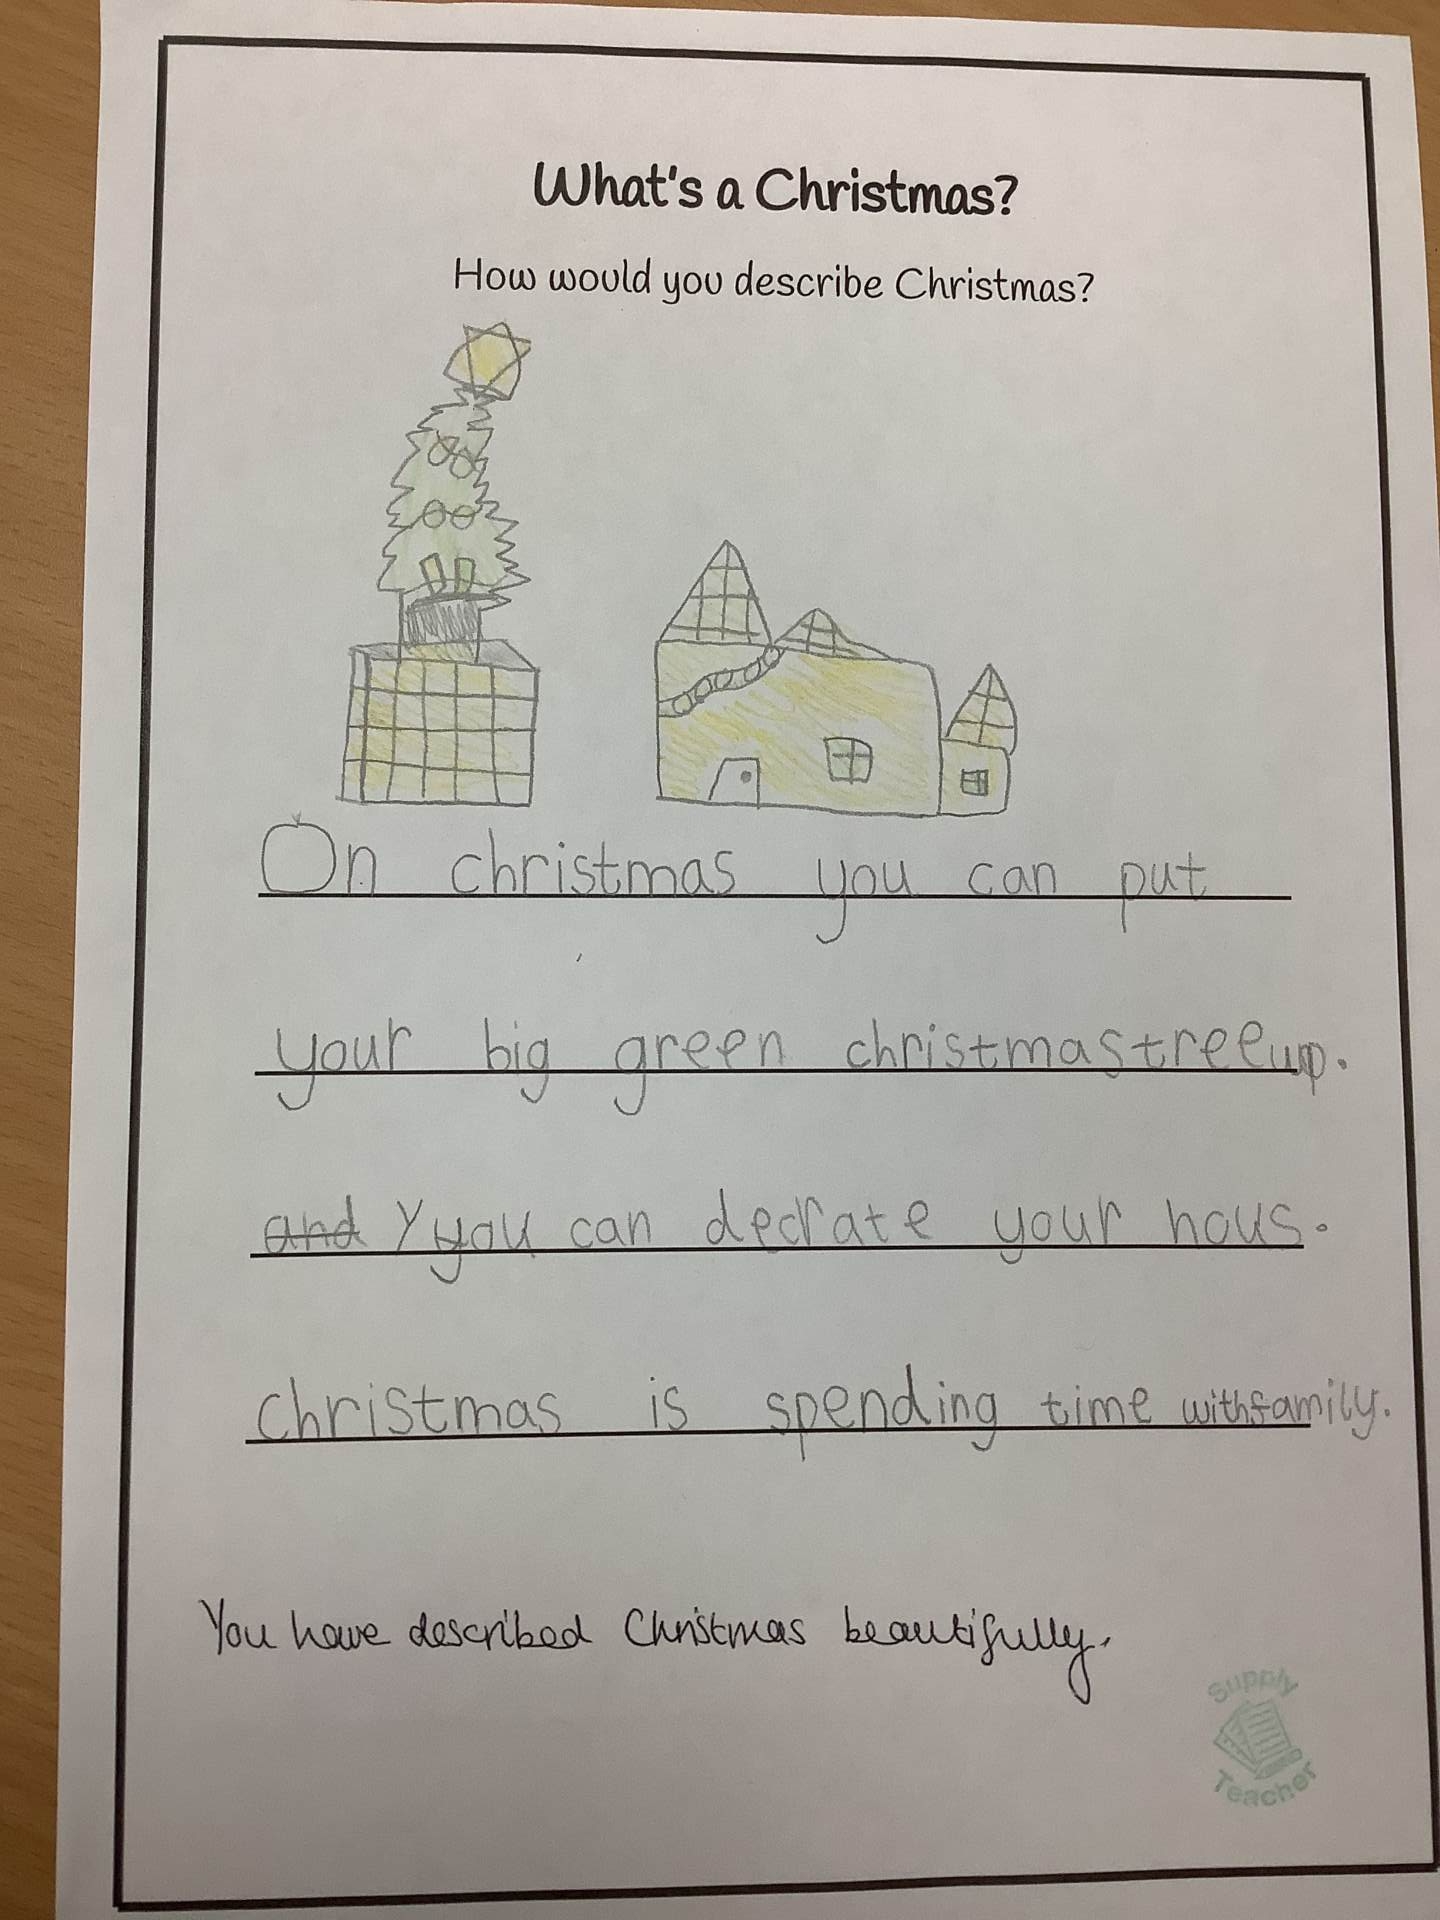 What's a Christmas?
How would you describe Christmas?
On christmas you can put
your big green christmastreeup.
and Yyou can decrate your hous.
christmas is spending time withfamily.
You have described Christmas beautifully.
Supply
Teacher